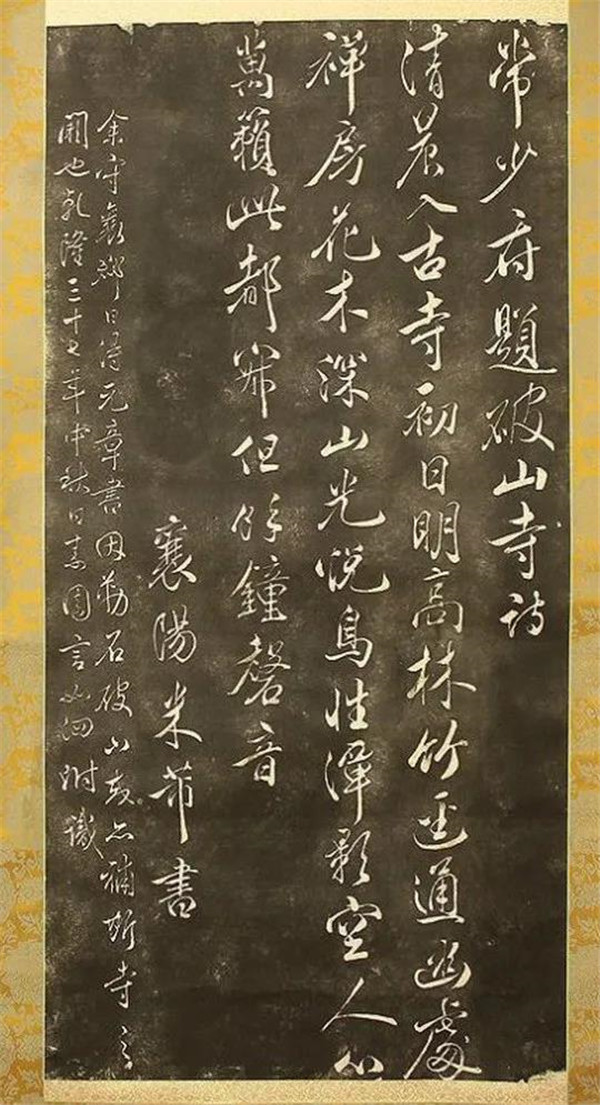 常少府題破山寺詩
清晨入古寺初日明高林竹迳通幽處
禅房花木深山光悦鳥性潭影空人心
萬籟此都寂但餘鐘磬音
襄陽米芾書
余守襄鄖日得元章書因勒石破山亦補斯寺之
闕也乾隆三十七年中秋日素園言如泗附識